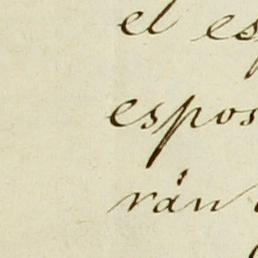 el es
espos
rán